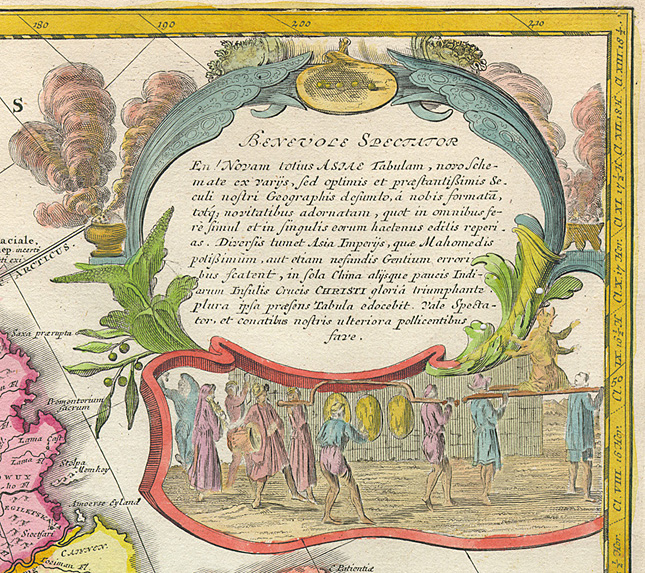 180
190
200
210
S
BENEVOLE SPECTATOR
En! Novam totius ASIAE Tabulam, novo Sche-
mate ex varijs, sed optimis et præstantißimis Se-
culi nostri Geographis desumto, â nobis formatâ,
totq; novitatibus adornatam, quot in omnibus fe-
rê simul et in singulis eorum hactenus editis reperi
as. Diversis tum et Asia Imperijs, quæ Mahomedis
potißimùm, aut etiam nefandis Gentium errori
bus scatent, in sola China alijsque paucis Indi
arum Insulis Crucis CHRISTI gloriâ triumphante
plura ipsa præsens Tabula edocebit. Vale Specta-
tor, et conatibus nostris ulteriora pollicentibus
fave.
laciale,
ARCTICUS.
Saxa prærupta
Promontorium
sacrum
Lama
Lama Fl
Stolpa
Memkoy
Amoerse Eyland
Sioetsari
C. Patientiæ
Cl. XIII. 18
Cl. XII. 18
Cl. XI. 17
Cl. X. 17 Hor.
Cl. IX 16
Cl. VIII 16 Hor.